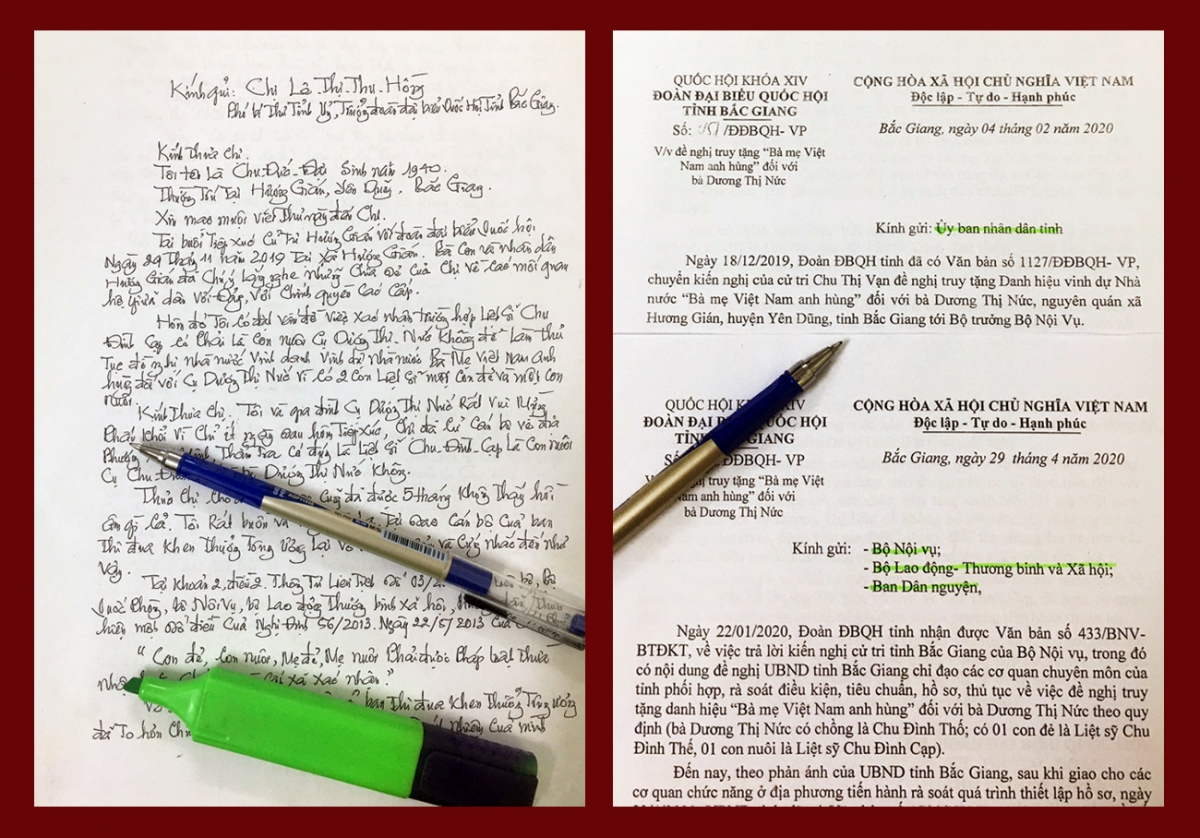 Kính gửi: Chị Lê Thị Thu Hồng
Phó bí Thư Tỉnh Uỷ, Trưởng đoàn đại biểu Quốc Hội Tỉnh Bắc Giang.
Kính Thưa Chị.
Tôi tên Là Chu Đức Đại Sinh năm 1940.
Thường Trú Tại Hương Gián, Yên Dũng, Bắc Giang.
Xin mạo muội viết Thư này đến Chị.
Tại buổi Tiếp xúc Cử Tri Hương Gián với đoàn đại biểu Quốc hội
Ngày 29 Tháng 11 năm 2019 Tại xã Hương Gián. Bà Con và nhân dân
Hương Gián đã Chú ý Lắng nghe những Của Chị về các mối quan
hệ giữa dân Với Đảng, Với Chính quyền Các Cấp.
Hôm đó Tôi có vấn đề Việc xác nhận Trường hợp Liệt Sĩ Chu
Đình Cạp có Phải Là Con nuôi Cụ Dương Thị Nức Không để Làm Thủ
Tục đề nghị nhà nước Vinh danh Vinh dự nhà nước Bà Mẹ Việt Nam Anh
hùng đối với Cụ Dương Thị Nức Vì có 2 Con Liệt Sĩ một Con đẻ và một Con
nuôi.
Kính Thưa Chị. Tôi và gia đình Cụ Dương Thị Nức Rất Vui Mừng
Phấn Khởi Vì Chỉ ít ngày sau hôm Tiếp xúc, Chị đã Cử Cán bộ về địa
Phương Thẩm Tra có đúng Là Liệt Sĩ Chu Đình Cạp Là Con nuôi
Cụ Chu Dương Thị Nức Không.
Thưa Chị Cho Cũng đã được 5 Tháng Không Thấy hồi
âm gì cả. Tôi Rất buồn và Tại sao Cán bộ Của ban
Thi đua Khen Thưởng Trung ương Lại Và Cứng nhắc đến như
vậy.
Tại Khoản 2, điều 2. Thông Tư Liên Tịch Số 03/2 Bộ
Quốc Phòng, bộ Nội Vụ, bộ Lao động Thương binh xã hội,
hiện một số điều Của Nghị Định 56/2013. Ngày 22/5/2013 Của
"Con đẻ, Con nuôi, Mẹ đẻ, Mẹ nuôi Phải được Pháp Luật Thừa
xã xác nhận."
ban Thi đua Khen Thưởng Trung ương
đã Của mình
QUỐC HỘI KHÓA XIV
ĐOÀN ĐẠI BIỂU QUỐC HỘI
TỈNH BẮC GIANG
Số: /ĐĐBQH- VP
V/v đề nghị truy tặng "Bà mẹ Việt
Nam anh hùng" đối với
bà Dương Thị Nức
CỘNG HÒA XÃ HỘI CHỦ NGHĨA VIỆT NAM
Độc lập - Tự do - Hạnh phúc
Bắc Giang, ngày 04 tháng 02 năm 2020
Kính gửi: Ủy ban nhân dân tỉnh
Ngày 18/12/2019, Đoàn ĐBQH tỉnh đã có Văn bản số 1127/ĐĐBQH- VP,
chuyển kiến nghị của cử tri Chu Thị Vạn đề nghị truy tặng Danh hiệu vinh dự Nhà
nước "Bà mẹ Việt Nam anh hùng" đối với bà Dương Thị Nức, nguyên quán xã
Hương Gián, huyện Yên Dũng, tỉnh Bắc Giang tới Bộ trưởng Bộ Nội Vụ.
QUỐC HỘI KHÓA XIV
ĐOÀN ĐẠI BIỂU QUỐC HỘI
TỈNH BẮC GIANG
ĐĐBQH- VP
nghị truy tặng "Bà mẹ Việt
Nam anh hùng" đối với
bà Dương Thị Nức
CỘNG HÒA XÃ HỘI CHỦ NGHĨA VIỆT NAM
Độc lập - Tự do - Hạnh phúc
Bắc Giang, ngày 29 tháng 4 năm 2020
Kính gửi: - Bộ Nội vụ;
- Bộ Lao động- Thương binh và Xã hội;
- Ban Dân nguyện,
Ngày 22/01/2020, Đoàn ĐBQH tỉnh nhận được Văn bản số 433/BNV-
BTĐKT, về việc trả lời kiến nghị cử tri tỉnh Bắc Giang của Bộ Nội vụ, trong đó
có nội dung đề nghị UBND tỉnh Bắc Giang chỉ đạo các cơ quan chuyên môn của
tỉnh phối hợp, rà soát điều kiện, tiêu chuẩn, hồ sơ, thủ tục về việc đề nghị truy
tặng danh hiệu "Bà mẹ Việt Nam anh hùng" đối với bà Dương Thị Nức theo quy
định (bà Dương Thị Nức có chồng là Chu Đình Thố; có 01 con đẻ là Liệt sỹ Chu
Đình Thế, 01 con nuôi là Liệt sỹ Chu Đình Cạp).
Đến nay, theo phản ánh của UBND tỉnh Bắc Giang, sau khi giao cho các
cơ quan chức năng ở địa phương tiến hành rà soát quá trình thiết lập hồ sơ, ngày